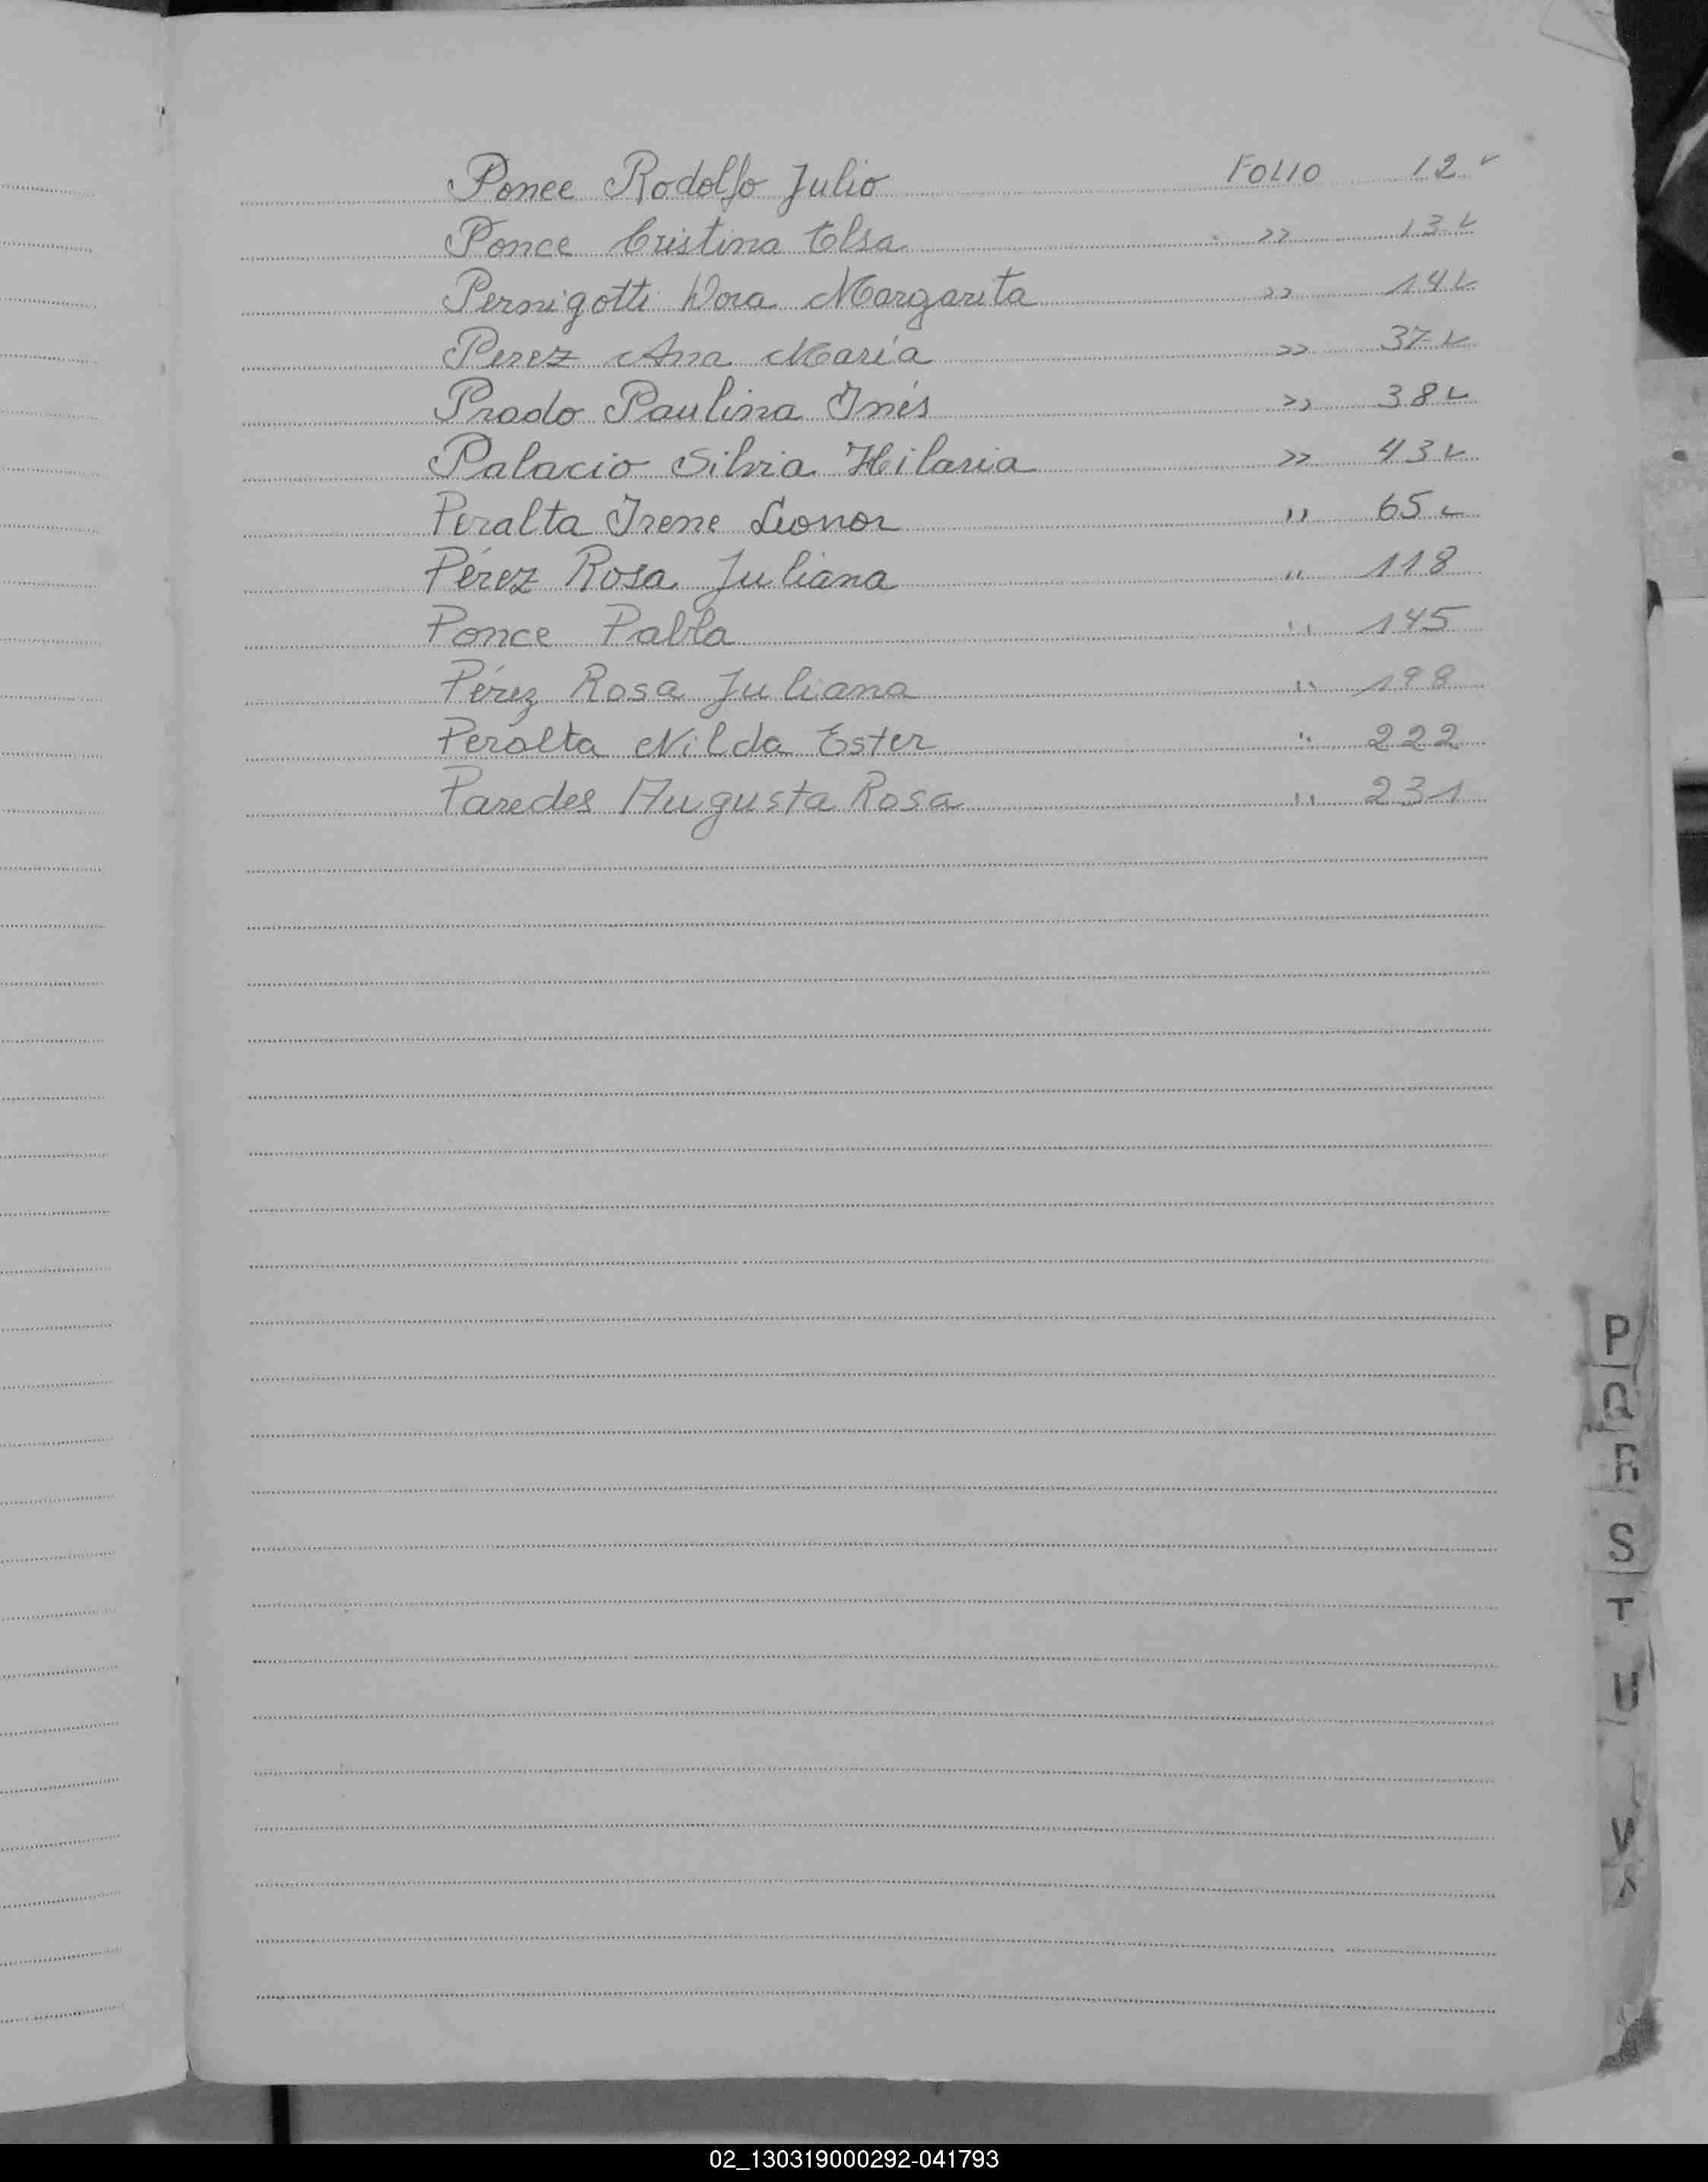 Ponce Rodolfo Julio FOLIO 12 ✓
Ponce Cristina Elsa " 13 ✓
Pernigotti Dora Margarita " 14 ✓
Perez Ana María " 37 ✓
Prado Paulina Inés " 38 ✓
Palacio Silvia Hilaria " 43 ✓
Peralta Irene Leonor " 65 ✓
Pérez Rosa Juliana " 118
Ponce Pabla " 145
Pérez Rosa Juliana " 198
Peralta Nilda Ester " 222
Paredes Augusta Rosa " 231
P
Q
R
S
T
U
V
02_130319000292-041793